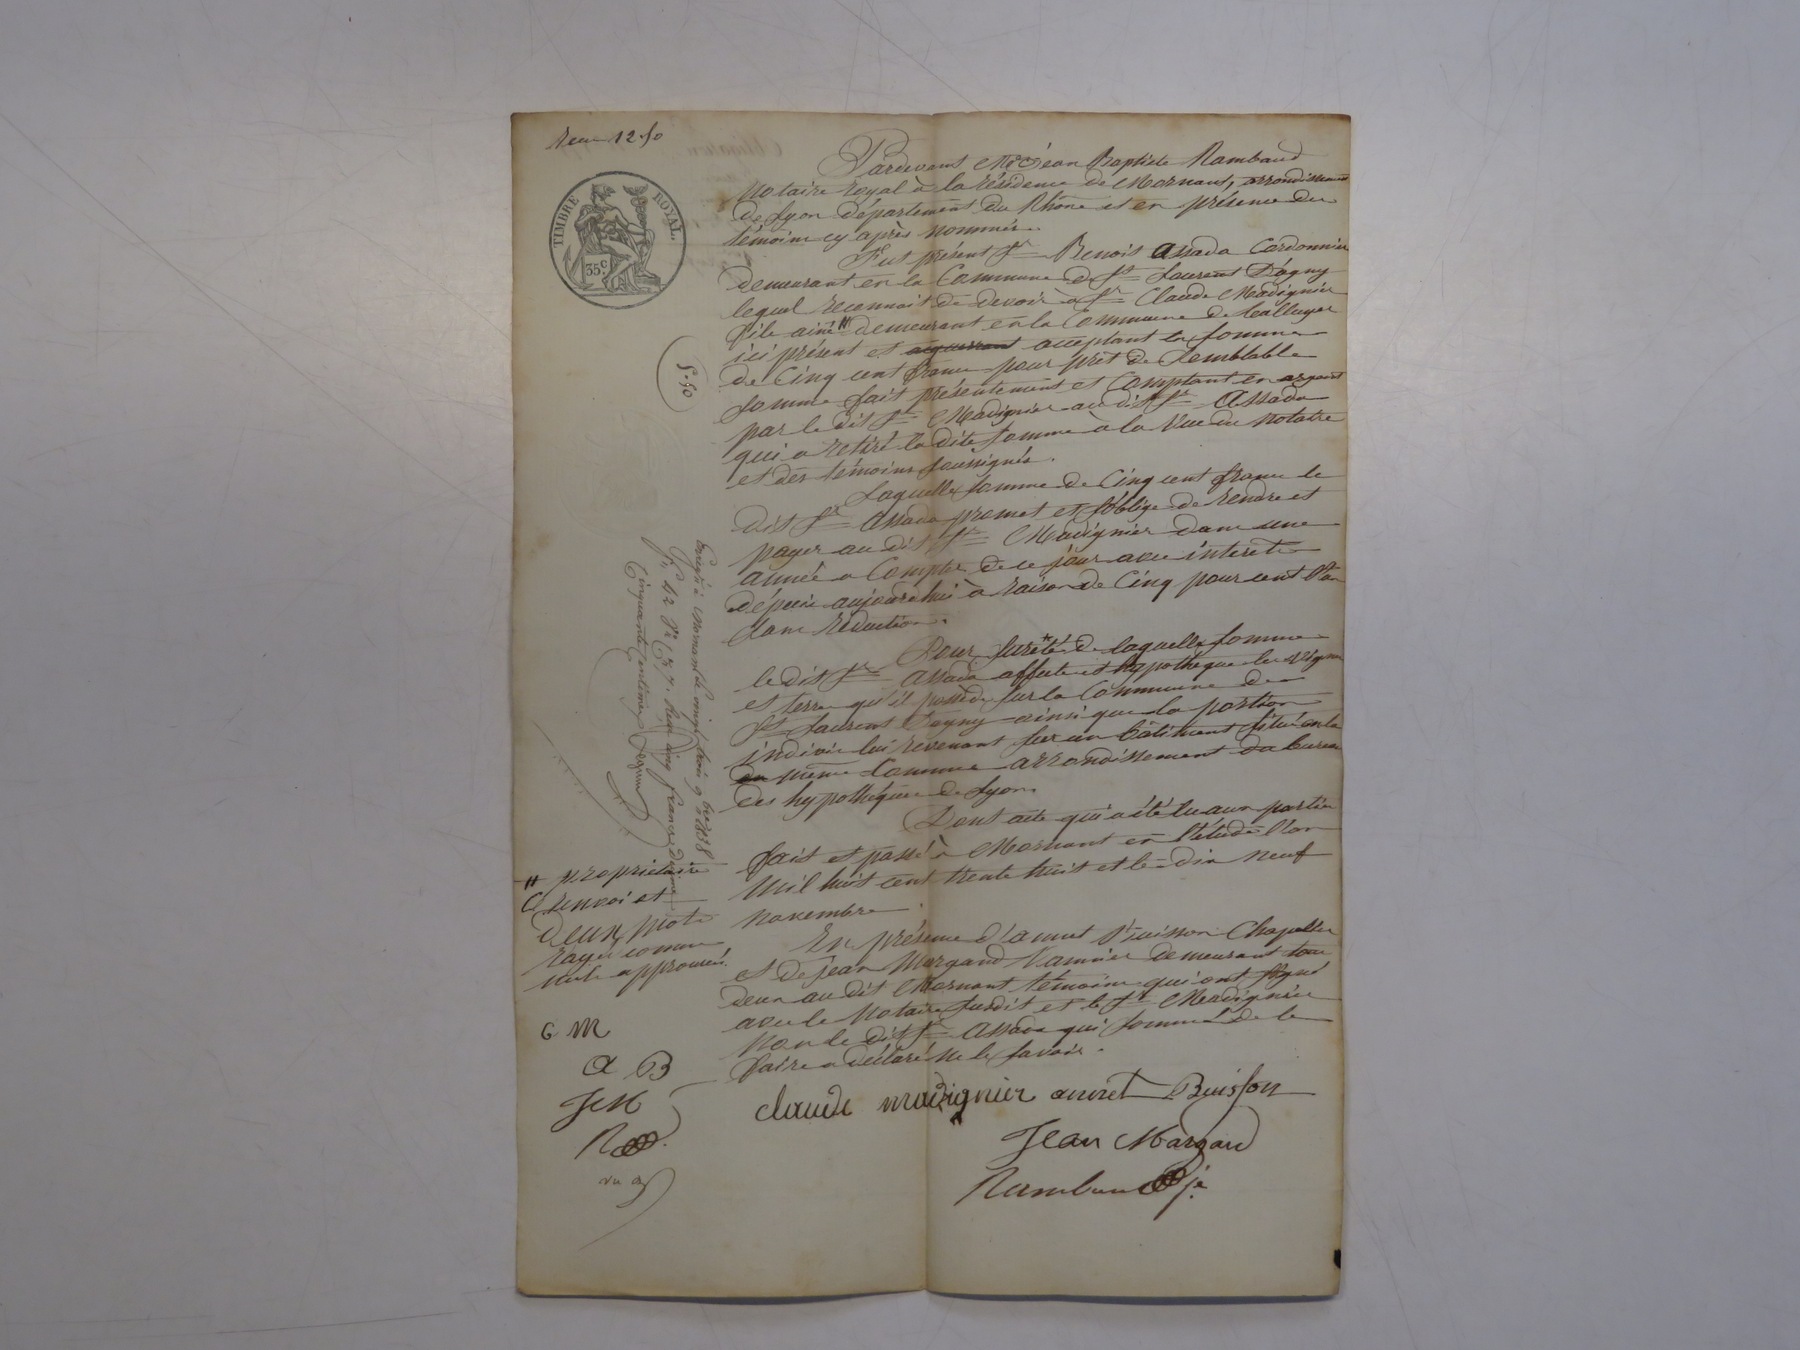 12.50
TIMBRE ROYAL.
35 c.
5.50
Pardevant Me Jean Baptiste Rambaud
Notaire royal à la résidence de Mornant, arrondissement
de Lyon département du Rhône et en présence des
témoins cy après nommés.
Fut présent Sr Benoit Assada Cordonnier
demeurant en la Commune de St Laurent Dagny
lequel reconnait de devoir à Sr Claude Madignier
fils ainé # demeurant en la Commune de Talluyer
ici présent et acceptant la somme
de Cinq cent francs pour prêt de Semblable
somme fait présentement et Comptant en argent
par le dit Sr Madignier au dit Sr Assada
qui a retiré la dite somme à la Vue du Notaire
et des témoins soussignés.
Laquelle somme de Cinq cent francs le
dit Sr Assada promet et s'oblige de rendre et
payer au dit Sr Madignier dans une
année a Compter de ce jour avec intérêts
dépuis aujourd'hui à raison de Cinq pour cent l'an
sans réduction.
Pour sureté de laquelle somme
le dit Sr Assada affecte et hypothèque les vignes
et terres qu'il possède sur la Commune de
St Laurent Dagny ainsi que la portion
indivise lui revenant sur un bâtiment situé en la
même Commune arrondissement du bureau
des hypothèques de Lyon.
Dont acte qui a été lu aux parties
fait et passé à Mornant en l'étude l'an
mil huit cent trente huit et le dix neuf
novembre
En présence d'annet Buisson Chapellier
et de jean Margand Vannier demeurant tous
deux au dit Mornant témoins qui ont signé
avec le Notaire susdit et le Sr Madignier
Non le dit Sr Assada qui sommé de le
faire a déclaré ne le savoir.
claude madignier annet Buisson
Jean Margand
Rambaud je
Enregistré à Mornant le vingt trois 9bre 1838
fo 42 Vo C 7. Reçu cinq francs dixième
Cinquante Centimes
# propriétaire
Ce renvoi et
deux mots
rayés comme
nuls approuvés.
C M
a B
J M
R